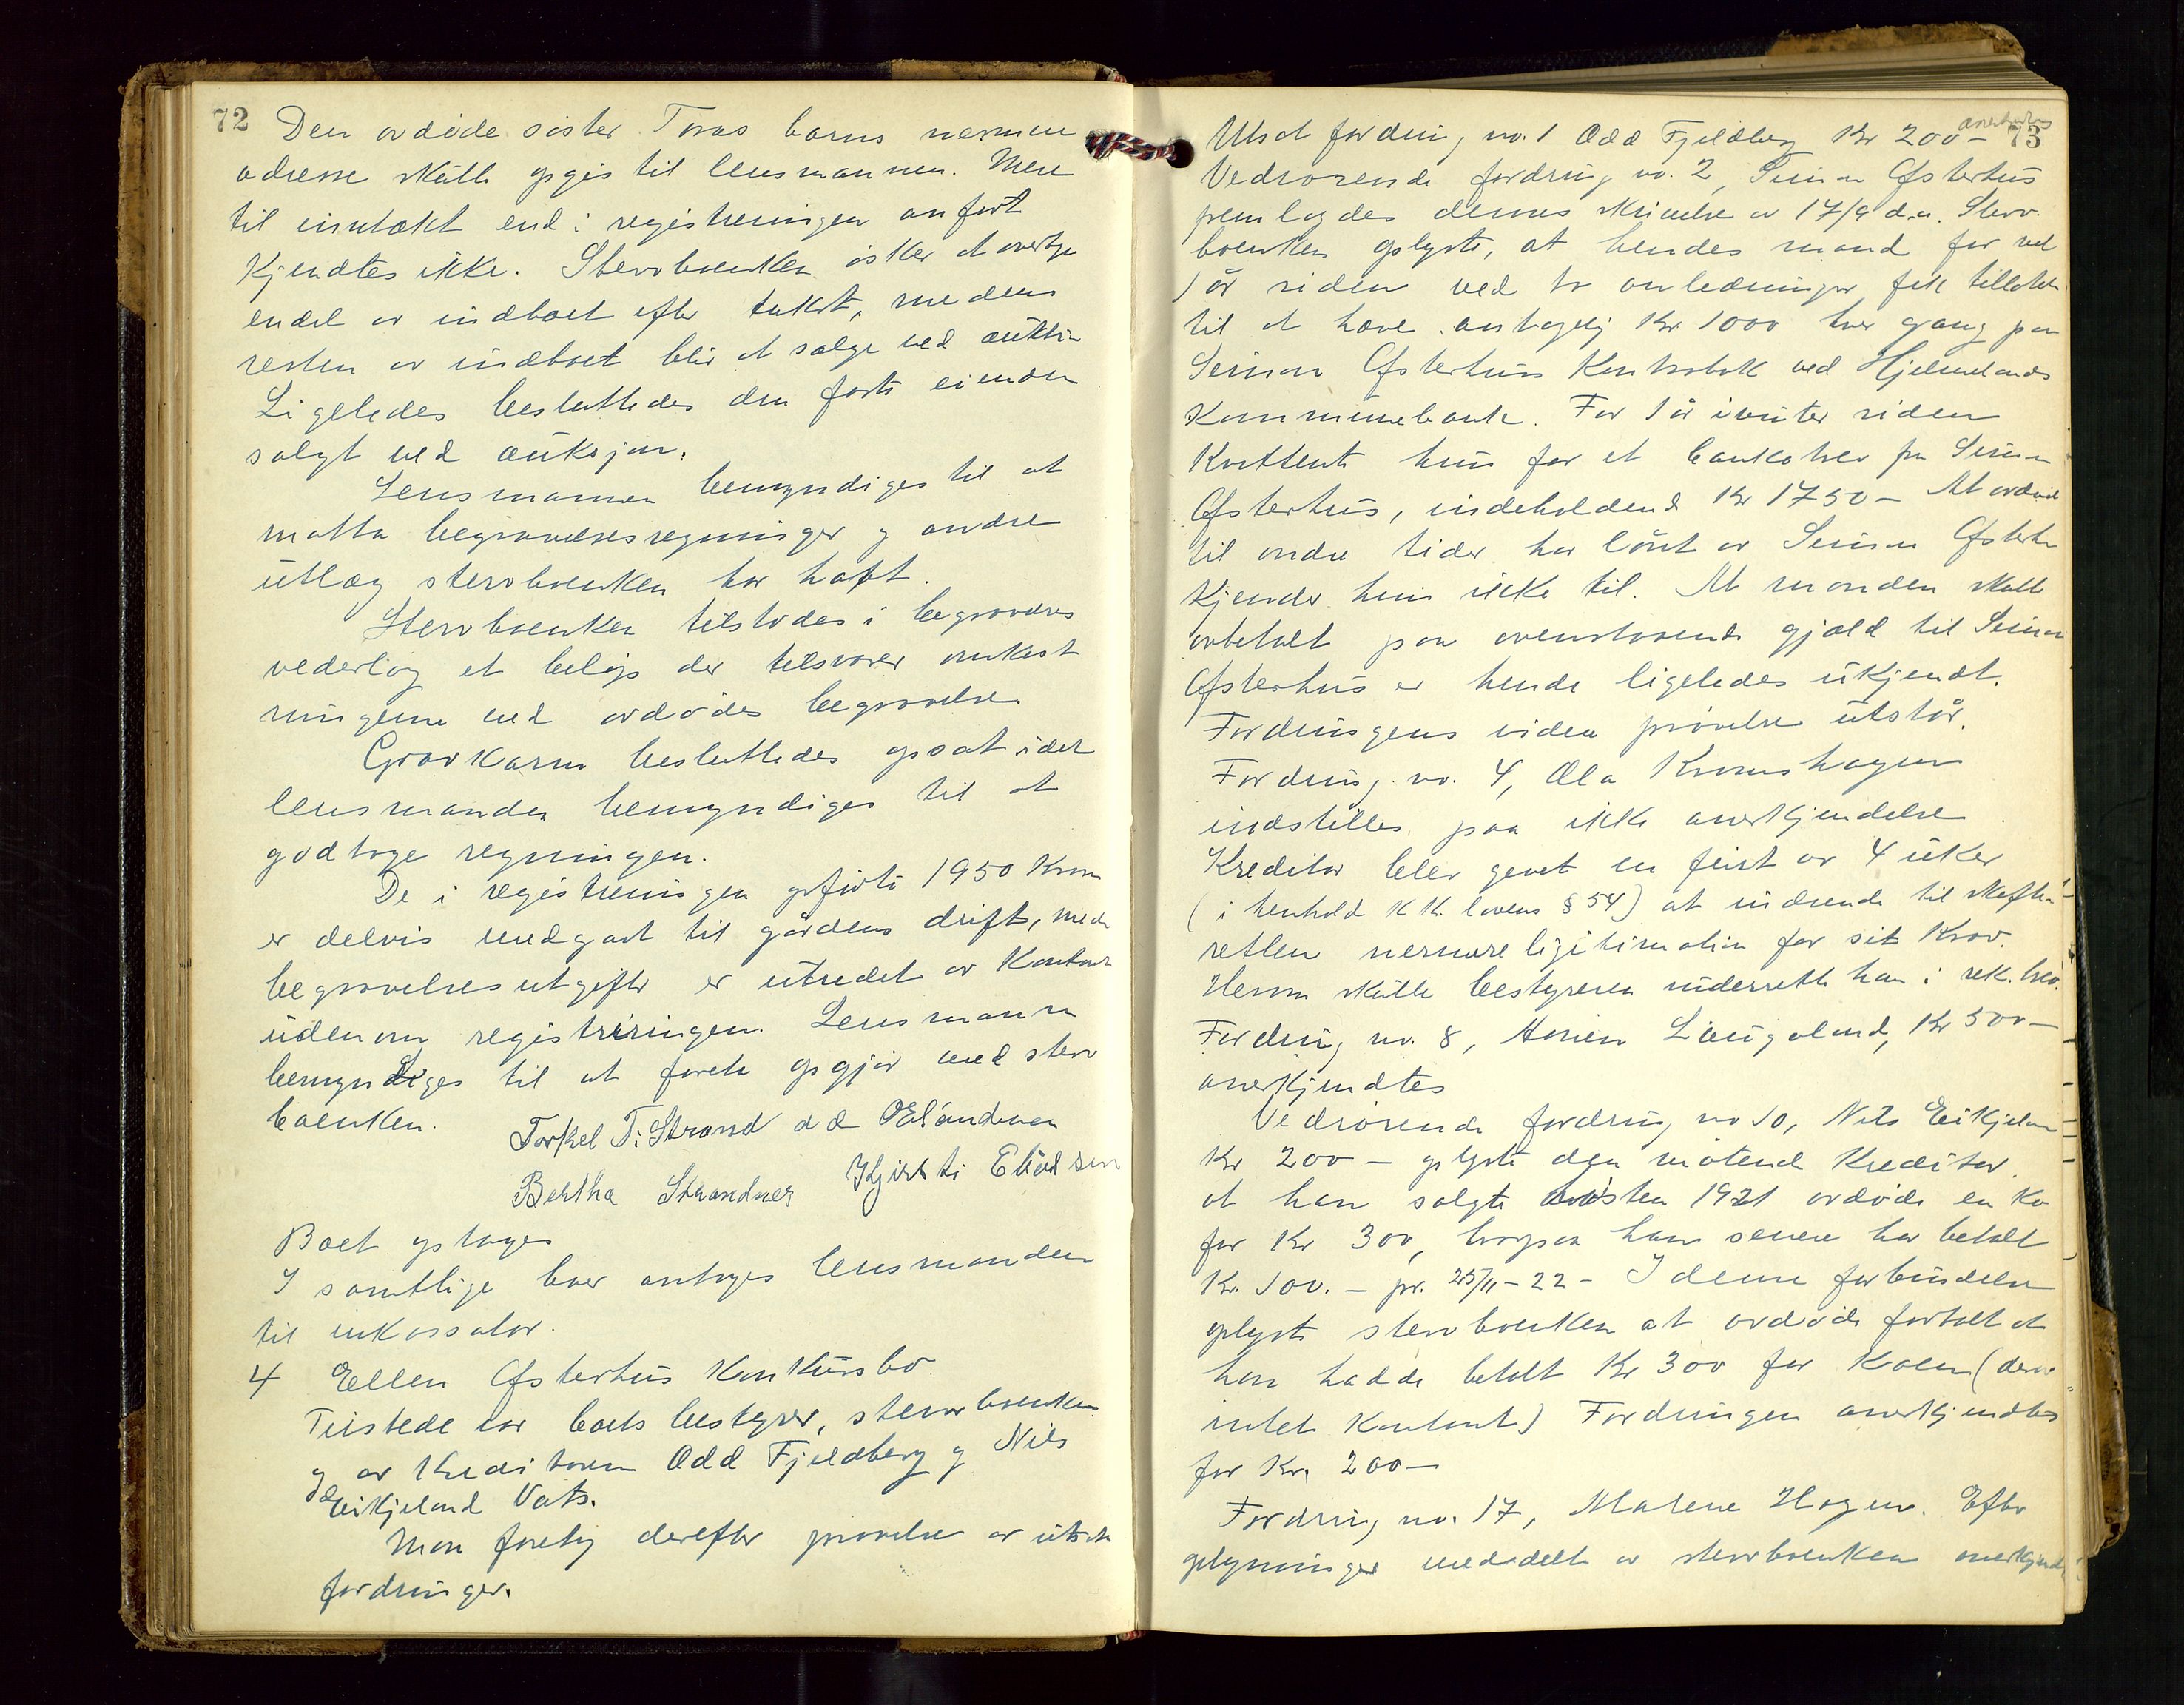 72
Den avdøde søster Toras barns nærmere
adresse skulle opgis til lensmannen. Mere
til inntækt end i registreringen anført
kjendtes ikke. Stervboenken øsker at overta
endel av indboet efter takst, medens
resten av indboet blir at sælge ved auktion
Ligeledes besluttedes den faste eiendom
solgt ved auksjon.
Lensmannen bemyndiges til at
motta begravelsesregninger og andre
utlæg stervboenken har havt.
Stervboenken tilstodes i begravelses
vederlag et beløp der tilsvarer omkost
ningerne ved avdødes begravelse
Gravkarm besluttedes opsat idet
lensmanden bemyndiges til at
godtage regningen.
De i registreringen opførte 1950 Kroner
er delvis medgaat til gårdens drift, mens
begravelsesutgifter er utredet av Kontant
udenom registreringen. Lensmannen
bemyndiges til at foreta opgjør med sterv
boenken.
Torkel T. Strand
Bertha Strandnes Kjirsti Eliassen
Boet optages
I samtlige boer antages lensmanden
til inkassator.
4 Ellen Ofsterhus Konkursbo.
Tilstede var boets bestyrer, stervboenken
og av Kreditorene Odd Fjeldberg og Nils
Eikjeland Vats.
Man foretog derefter prøvelse av utsatte
fordringer.
anerkjendtes 73
Utsat fordring no. 1 Odd Fjeldberg Kr 200 –
Vedrørende fordring no. 2, Simon Ofsterhus
fremlagdes dennes skrivelse av 17/9 d.a. Sterv-
boenken oplyste, at hendes mand for vel
1 år siden ved to anledninger fik tillatelse
til at hæve antagelig Kr 1000 hver gang paa
Simon Ofsterhus Kontrabok ved Hjelmelands
Kommunebank. For 1 år i vinter siden
Kvitterte hun for et bankobrev fra Simon
Ofsterhus, indeholdende Kr 1750 – At avdøde
til andre tider har lånt av Simon Ofsterhus
Kjender hun ikke til. At manden skulle
avbetalt paa ovenstaaende gjæld til Simon
Ofsterhus er hende ligeledes ukjendt.
Fordringens videre prøvelse utstår.
Fordring no. 4, Ola Kromshagen
indstilles paa ikke anerkjendelse
Kreditor blev gevet en frist av 4 uker
(i henhold KK. lovens § 54) at indsende til skifte-
retten nærmere ligitimation for sit Krav.
Herom skulle bestyreren underrette ham i rek. brev.
Fordring no. 8, Laugaland, Kr 500 –
anerkjendtes
Vedrørende fordring no 10, Nils Eikjeland
Kr 200 – oplyste den møtende Kreditor
at han solgte høsten 1921 avdøde en Ko
for Kr 300, hvorpaa han senere har betalt
Kr. 100. – pr. 25/11 – 22 – I denne forbindelse
oplyste stervboenken at avdøde fortalt at
han hadde betalt Kr 300 for Koen (derav
intet Kontant) Fordringen anerkjendtes
for Kr. 200 –
Fordring no. 17, Malene Hagen. Efter
oplysninger meddelt av stervboenken anerkjendtes